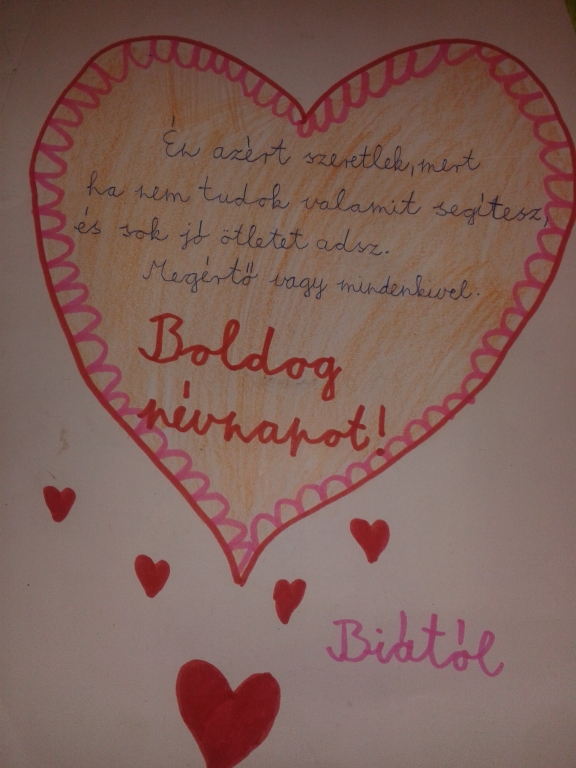 Én azért szeretlek, mert
ha nem tudok valamit segítesz,
és sok jó ötletet adsz.
Megértő vagy mindenkivel.
Boldog
névnapot!
Biától